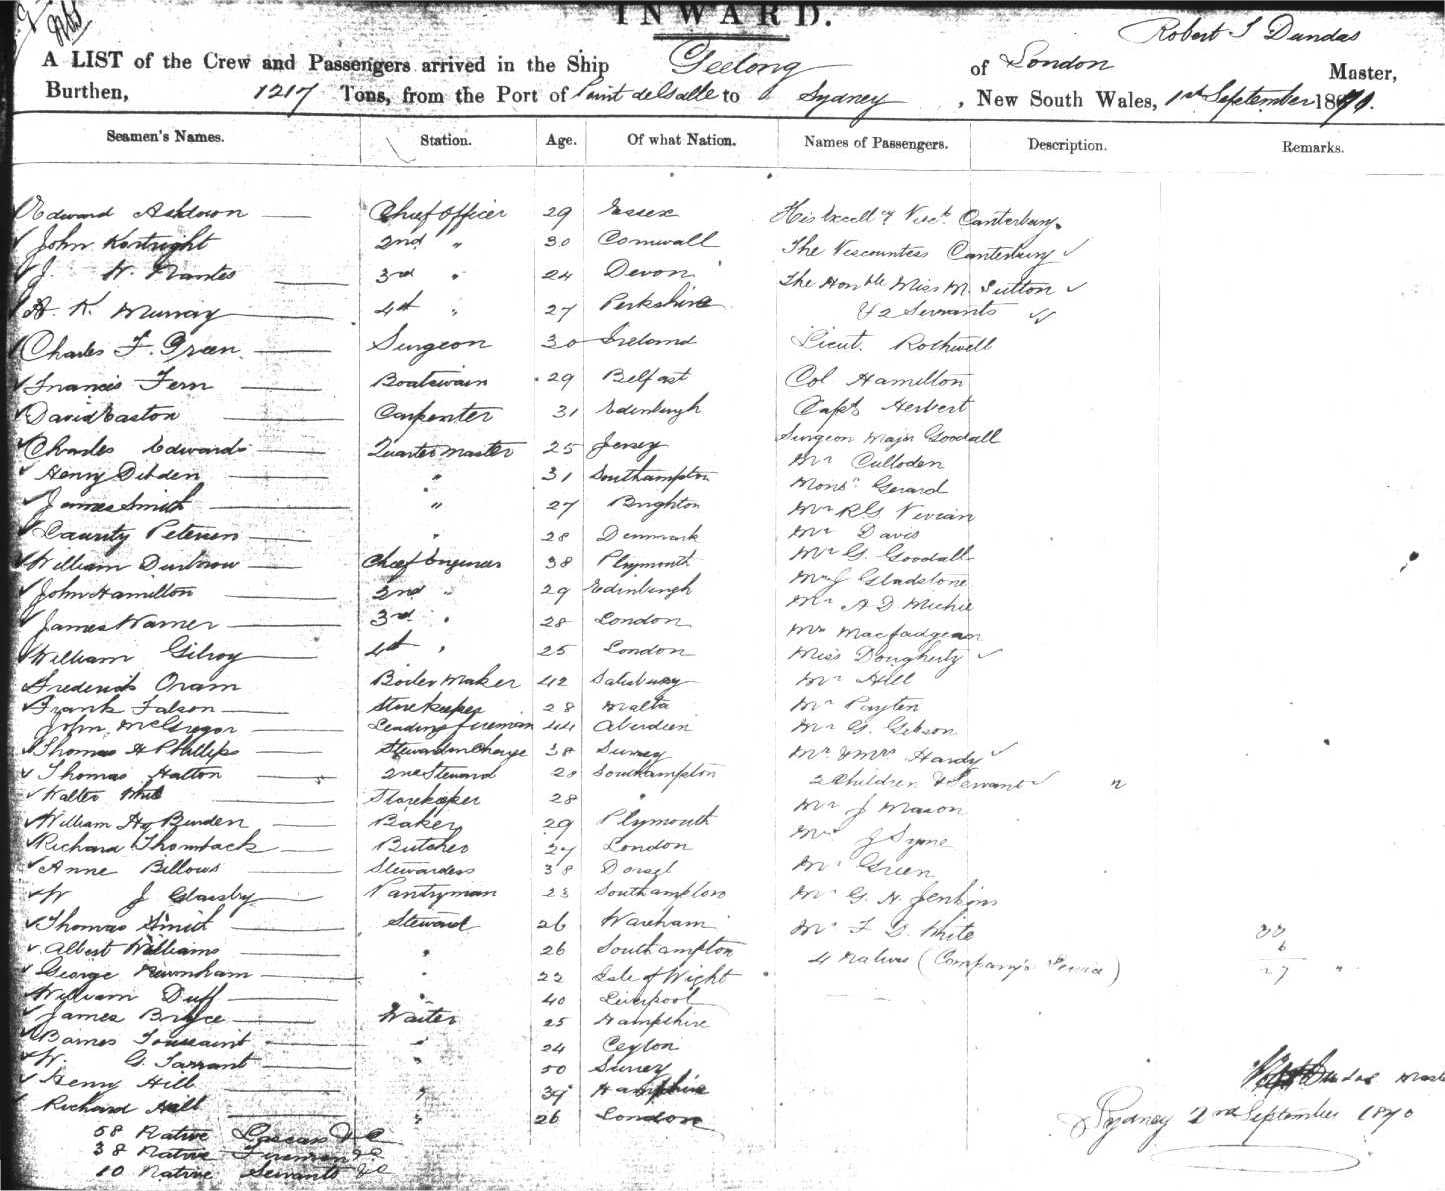 INWARD.
Robert S Dundas
A LIST of the Crew and Passengers arrived in the Ship Geelong of London Master,
Burthen, 1217 Tons, from the Port of Point de Galle to Sydney, New South Wales, 1st September 1870.
Seamen's Names. Station. Age. Of what Nation. Names of Passengers. Description. Remarks.
Edward Ashdown Chief Officer 29 Essex His Excellcy Visct. Canterbury
John Kortright 2nd " 30 Cornwall The Viscountess Canterbury
J. W. Nantes 3rd " 24 Devon The Honble Miss M. Sutton
A. K. Murray 4th " 27 Perkshire & 2 Servants
Charles F. Green Surgeon 30 Ireland Lieut. Rothwell
Francis Fern Boatswain 29 Belfast Col Hamilton
David Easton Carpenter 31 Edinburgh Capt Herbert
Charles Edwards Quarter Master 25 Jersey Surgeon Major Goodall
Henry Dibden " 31 Southampton Mr Culloden
James Smith " 27 Brighton Monsr Gerard
Petersen " 28 Denmark Mr RG Vivian
William Durbrow Chief Engineer 38 Plymouth Mr Davis
John Hamilton 2nd " 29 Edinburgh Mr G. Goodall
James Warner 3rd " 28 London Mr J Gladstone
William Gilroy 4th " 25 London Mr A D Michie
Frederick Oram Boiler Maker 42 Salisbury Mr Macfadgean
Frank Falson Storekeeper 28 Malta Miss Dougherty
John McGregor Leading fireman 44 Aberdeen Mr Hill
Thomas H Phillips Steward in Charge 38 Surrey Mr Payten
Thomas Hatton 2nd Steward 28 Southampton Mr G. Gibson
Walter Storekeeper 28 " Mr & Mrs Hardy
William Hy Burden Baker 29 Plymouth 2 Children & Servant
Richard Thomback Butcher 27 London Mr J Mason
Anne Billows Stewardess 38 Dorset Mr J Syme
W J Glansby Pantryman 23 Southampton Mr Green
Thomas Smith Steward 26 Wareham Mr G. H. Jenkins
Albert Williams " 26 Southampton Mr F D. White
George Newnham " 22 Isle of Wight 4 Natives (Company's Service)
William Duff " 40 Liverpool
James Bryce Waiter 25 Hampshire
Barnes Toussaint " 24 Ceylon
W. G. Tarrant " 50 Surrey
Henry Hill " 39 Hampshire
Richard Hill " 26 London
33
6
27 "
58 Native Lascars &c
38 Native Firemen &c
10 Native Servants &c
Dundas Master
Sydney 2nd September 1870